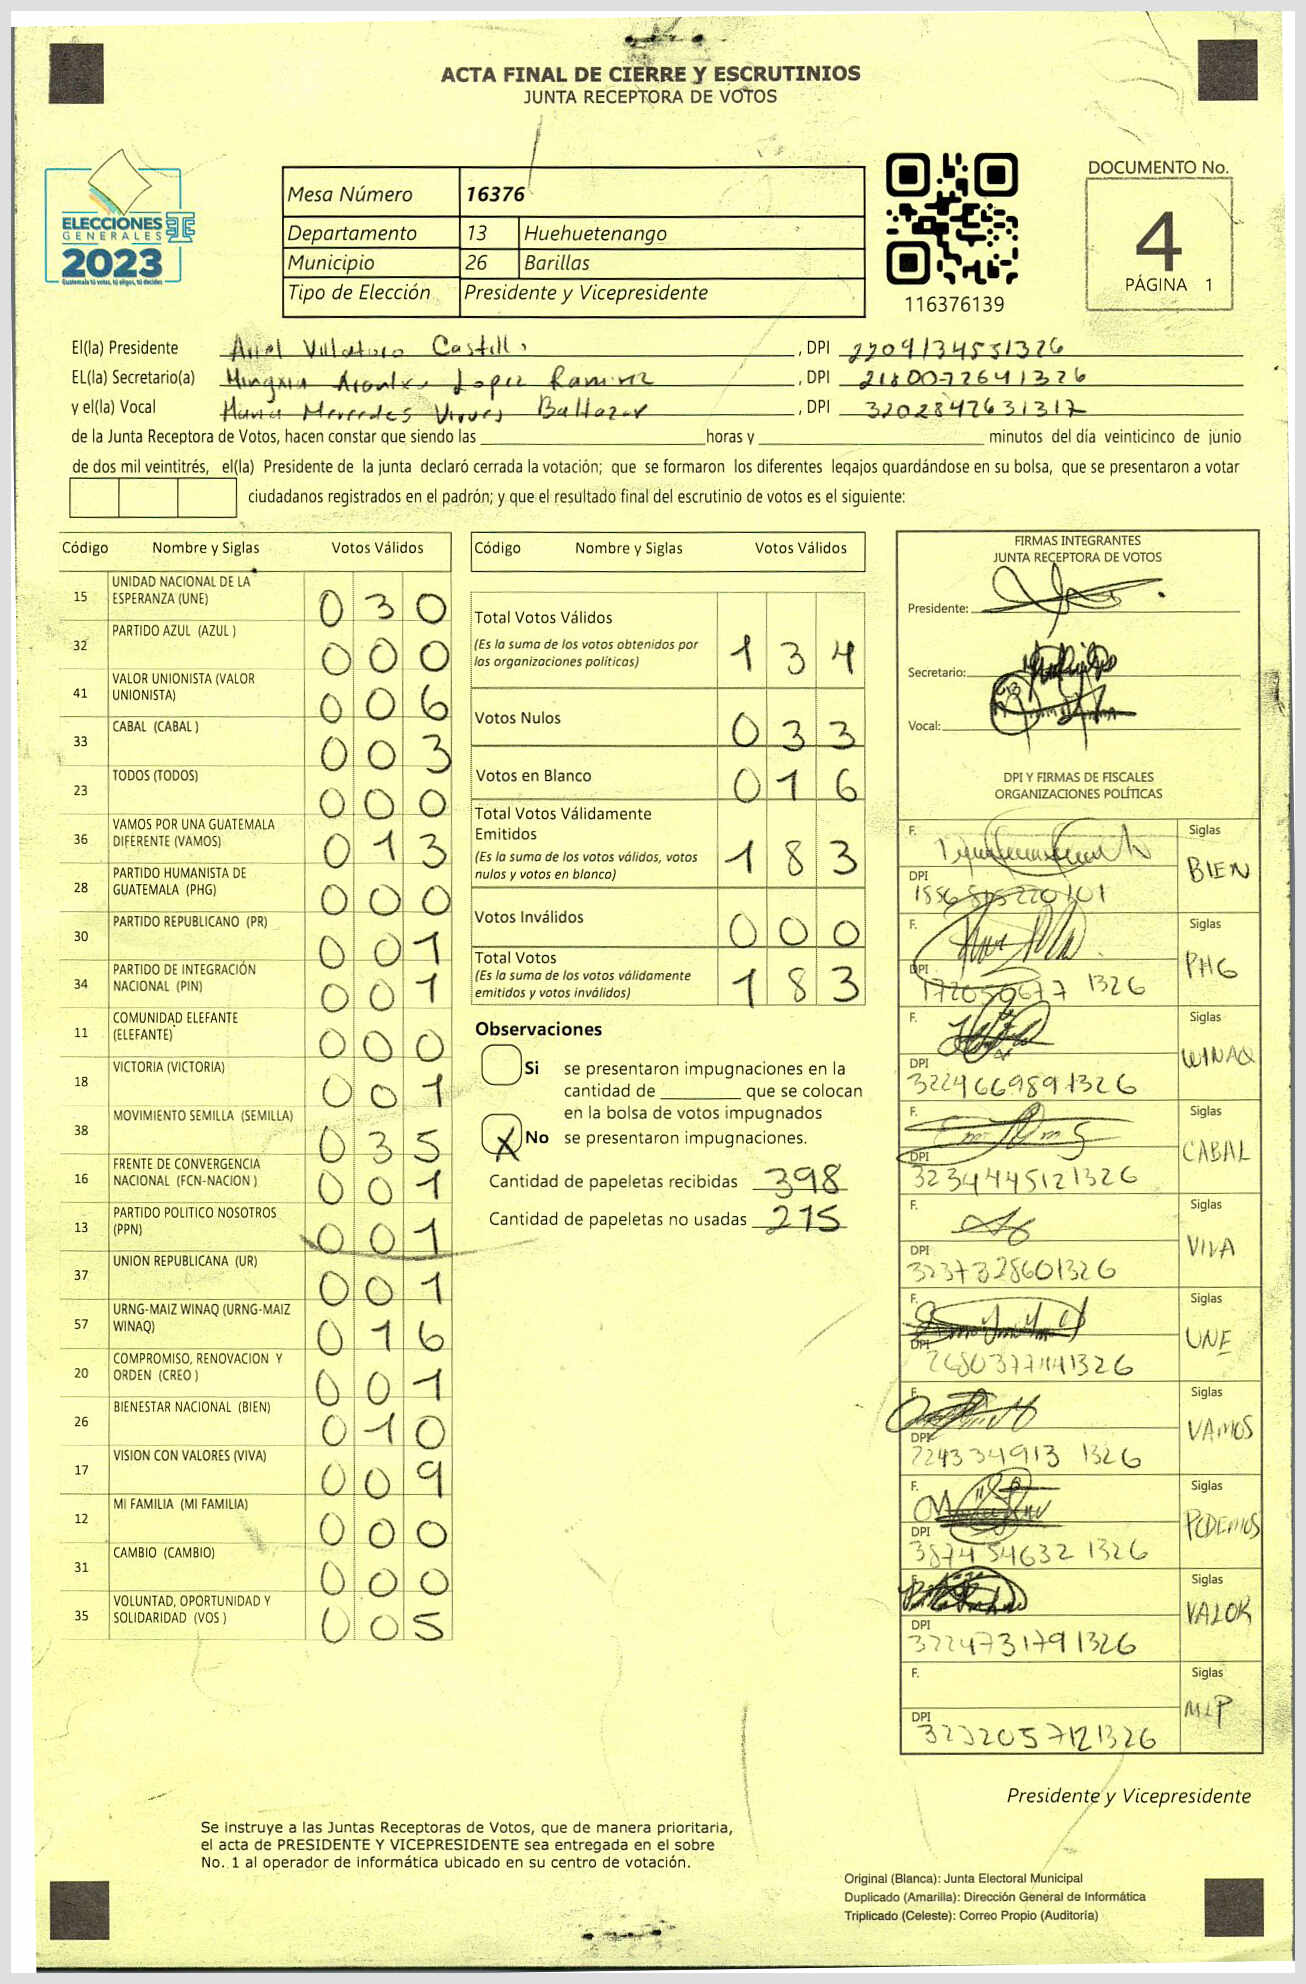 ACTA FINAL DE CIERRE Y ESCRUTINIOS
JUNTA RECEPTORA DE VOTOS
ELECCIONES
GENERALES
2023
Guatemala tú votas, tú eliges, tú decides
Mesa Número 16376
Departamento 13 Huehuetenango
Municipio 26 Barillas
Tipo de Elección Presidente y Vicepresidente
116376139
DOCUMENTO No.
4
PÁGINA 1
El(la) Presidente Villatoro Castillo, DPI 2209134551326
EL(la) Secretario(a) Lopez Ramirez, DPI 2180072641326
y el(la) Vocal Maria Mercedes Baltazar, DPI 3202847631317
de la Junta Receptora de Votos, hacen constar que siendo las horas y minutos del día veinticinco de junio
de dos mil veintitrés, el(la) Presidente de la junta declaró cerrada la votación; que se formaron los diferentes legajos guardándose en su bolsa, que se presentaron a votar
ciudadanos registrados en el padrón; y que el resultado final del escrutinio de votos es el siguiente:
Código Nombre y Siglas Votos Válidos
15 UNIDAD NACIONAL DE LA ESPERANZA (UNE) 0 3 0
32 PARTIDO AZUL (AZUL ) 0 0 0
41 VALOR UNIONISTA (VALOR UNIONISTA) 0 0 6
33 CABAL (CABAL ) 0 0 3
23 TODOS (TODOS) 0 0 0
36 VAMOS POR UNA GUATEMALA DIFERENTE (VAMOS) 0 1 3
28 PARTIDO HUMANISTA DE GUATEMALA (PHG) 0 0 0
30 PARTIDO REPUBLICANO (PR) 0 0 1
34 PARTIDO DE INTEGRACIÓN NACIONAL (PIN) 0 0 1
11 COMUNIDAD ELEFANTE (ELEFANTE) 0 0 0
18 VICTORIA (VICTORIA) 0 0 1
38 MOVIMIENTO SEMILLA (SEMILLA) 0 3 5
16 FRENTE DE CONVERGENCIA NACIONAL (FCN-NACION ) 0 0 1
13 PARTIDO POLITICO NOSOTROS (PPN) 0 0 1
37 UNION REPUBLICANA (UR) 0 0 1
57 URNG-MAIZ WINAQ (URNG-MAIZ WINAQ) 0 1 6
20 COMPROMISO, RENOVACION Y ORDEN (CREO ) 0 0 1
26 BIENESTAR NACIONAL (BIEN) 0 1 0
17 VISION CON VALORES (VIVA) 0 0 9
12 MI FAMILIA (MI FAMILIA) 0 0 0
31 CAMBIO (CAMBIO) 0 0 0
35 VOLUNTAD, OPORTUNIDAD Y SOLIDARIDAD (VOS ) 0 0 5
Código Nombre y Siglas Votos Válidos
Total Votos Válidos 1 3 4
(Es la suma de los votos obtenidos por
las organizaciones políticas)
Votos Nulos 0 3 3
Votos en Blanco 0 1 6
Total Votos Válidamente
Emitidos 1 8 3
(Es la suma de los votos válidos, votos
nulos y votos en blanco)
Votos Inválidos 0 0 0
Total Votos 1 8 3
(Es la suma de los votos válidamente
emitidos y votos inválidos)
Observaciones
Si se presentaron impugnaciones en la
cantidad de que se colocan
en la bolsa de votos impugnados
X No se presentaron impugnaciones.
Cantidad de papeletas recibidas 398
Cantidad de papeletas no usadas 215
FIRMAS INTEGRANTES
JUNTA RECEPTORA DE VOTOS
Presidente:
Secretario:
Vocal:
DPI Y FIRMAS DE FISCALES
ORGANIZACIONES POLÍTICAS
F. Siglas BIEN
DPI
F. Siglas PHG
DPI 1326
F. Siglas WINAQ
DPI 3224669891326
F. Siglas CABAL
DPI 3234445121326
F. Siglas VIVA
DPI 3237328601326
F. Siglas UNE
DPI
F. Siglas VAMOS
DPI 224334913 1326
F. Siglas PODEMOS
DPI 3874 54632 1326
F. Siglas VALOR
DPI 3224731791326
F. Siglas MLP
DPI 3222057121326
Presidente y Vicepresidente
Se instruye a las Juntas Receptoras de Votos, que de manera prioritaria,
el acta de PRESIDENTE Y VICEPRESIDENTE sea entregada en el sobre
No. 1 al operador de informática ubicado en su centro de votación.
Original (Blanca): Junta Electoral Municipal
Duplicado (Amarilla): Dirección General de Informática
Triplicado (Celeste): Correo Propio (Auditoría)